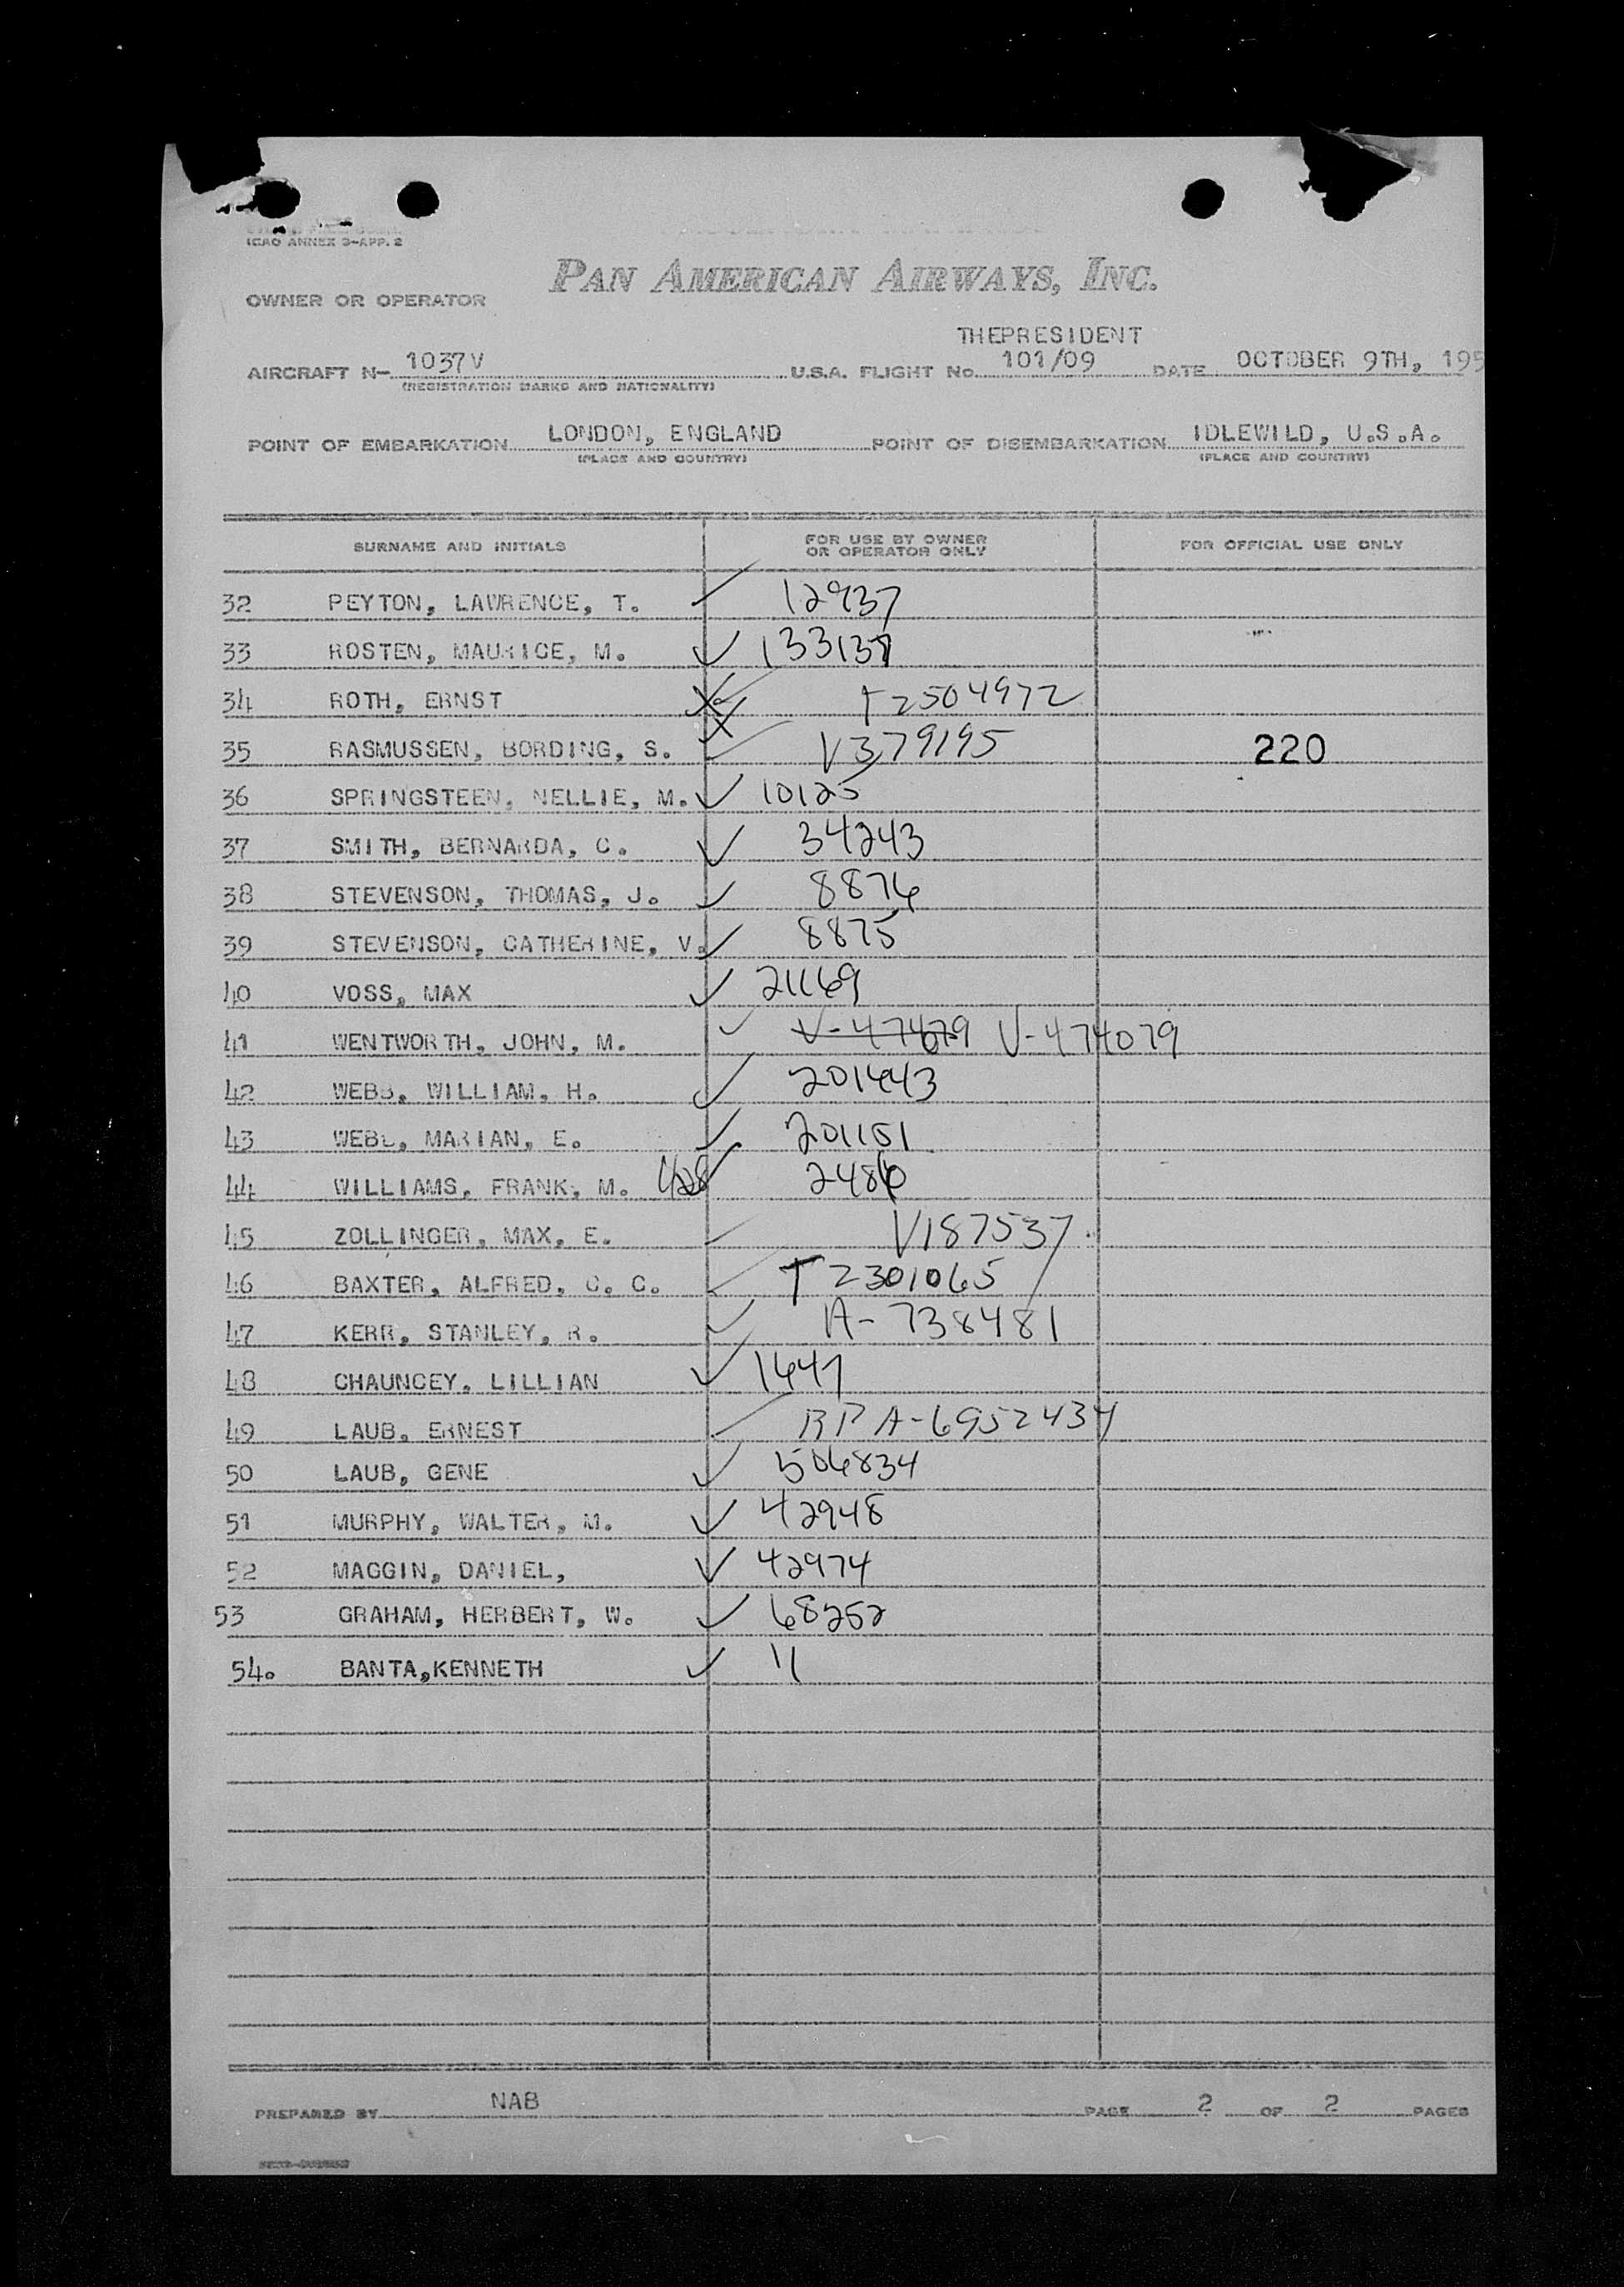 ICAO ANNEX 9-APP. 2
PAN AMERICAN AIRWAYS, INC.
OWNER OR OPERATOR
THEPRESIDENT
AIRCRAFT N- 1037V U.S.A. FLIGHT No. 101/09 DATE OCTOBER 9TH, 195
(REGISTRATION MARKS AND NATIONALITY)
POINT OF EMBARKATION LONDON, ENGLAND POINT OF DISEMBARKATION IDLEWILD, U.S.A.
(PLACE AND COUNTRY) (PLACE AND COUNTRY)
SURNAME AND INITIALS FOR USE BY OWNER OR OPERATOR ONLY FOR OFFICIAL USE ONLY
32 PEYTON, LAWRENCE, T. 12937
33 ROSTEN, MAURICE, M. 133137
34 ROTH, ERNST T2504972
35 RASMUSSEN, BORDING, S. V379195 220
36 SPRINGSTEEN, NELLIE, M. 10125
37 SMITH, BERNARDA, C. 34243
38 STEVENSON, THOMAS, J. 8876
39 STEVENSON, CATHERINE, V. 8875
40 VOSS, MAX 21169
41 WENTWORTH, JOHN, M. V-474079
42 WEBB, WILLIAM, H. 201443
43 WEBB, MARIAN, E. 201151
44 WILLIAMS, FRANK, M. 2486
45 ZOLLINGER, MAX, E. V187537
46 BAXTER, ALFRED, C. C. T2301065
47 KERR, STANLEY, R. A-738481
48 CHAUNCEY, LILLIAN 1647
49 LAUB, ERNEST RP A-6952434
50 LAUB, GENE 506834
51 MURPHY, WALTER, M. 42948
52 MAGGIN, DANIEL, 42974
53 GRAHAM, HERBERT, W. 68252
54. BANTA,KENNETH 11
PREPARED BY NAB PAGE 2 OF 2 PAGES